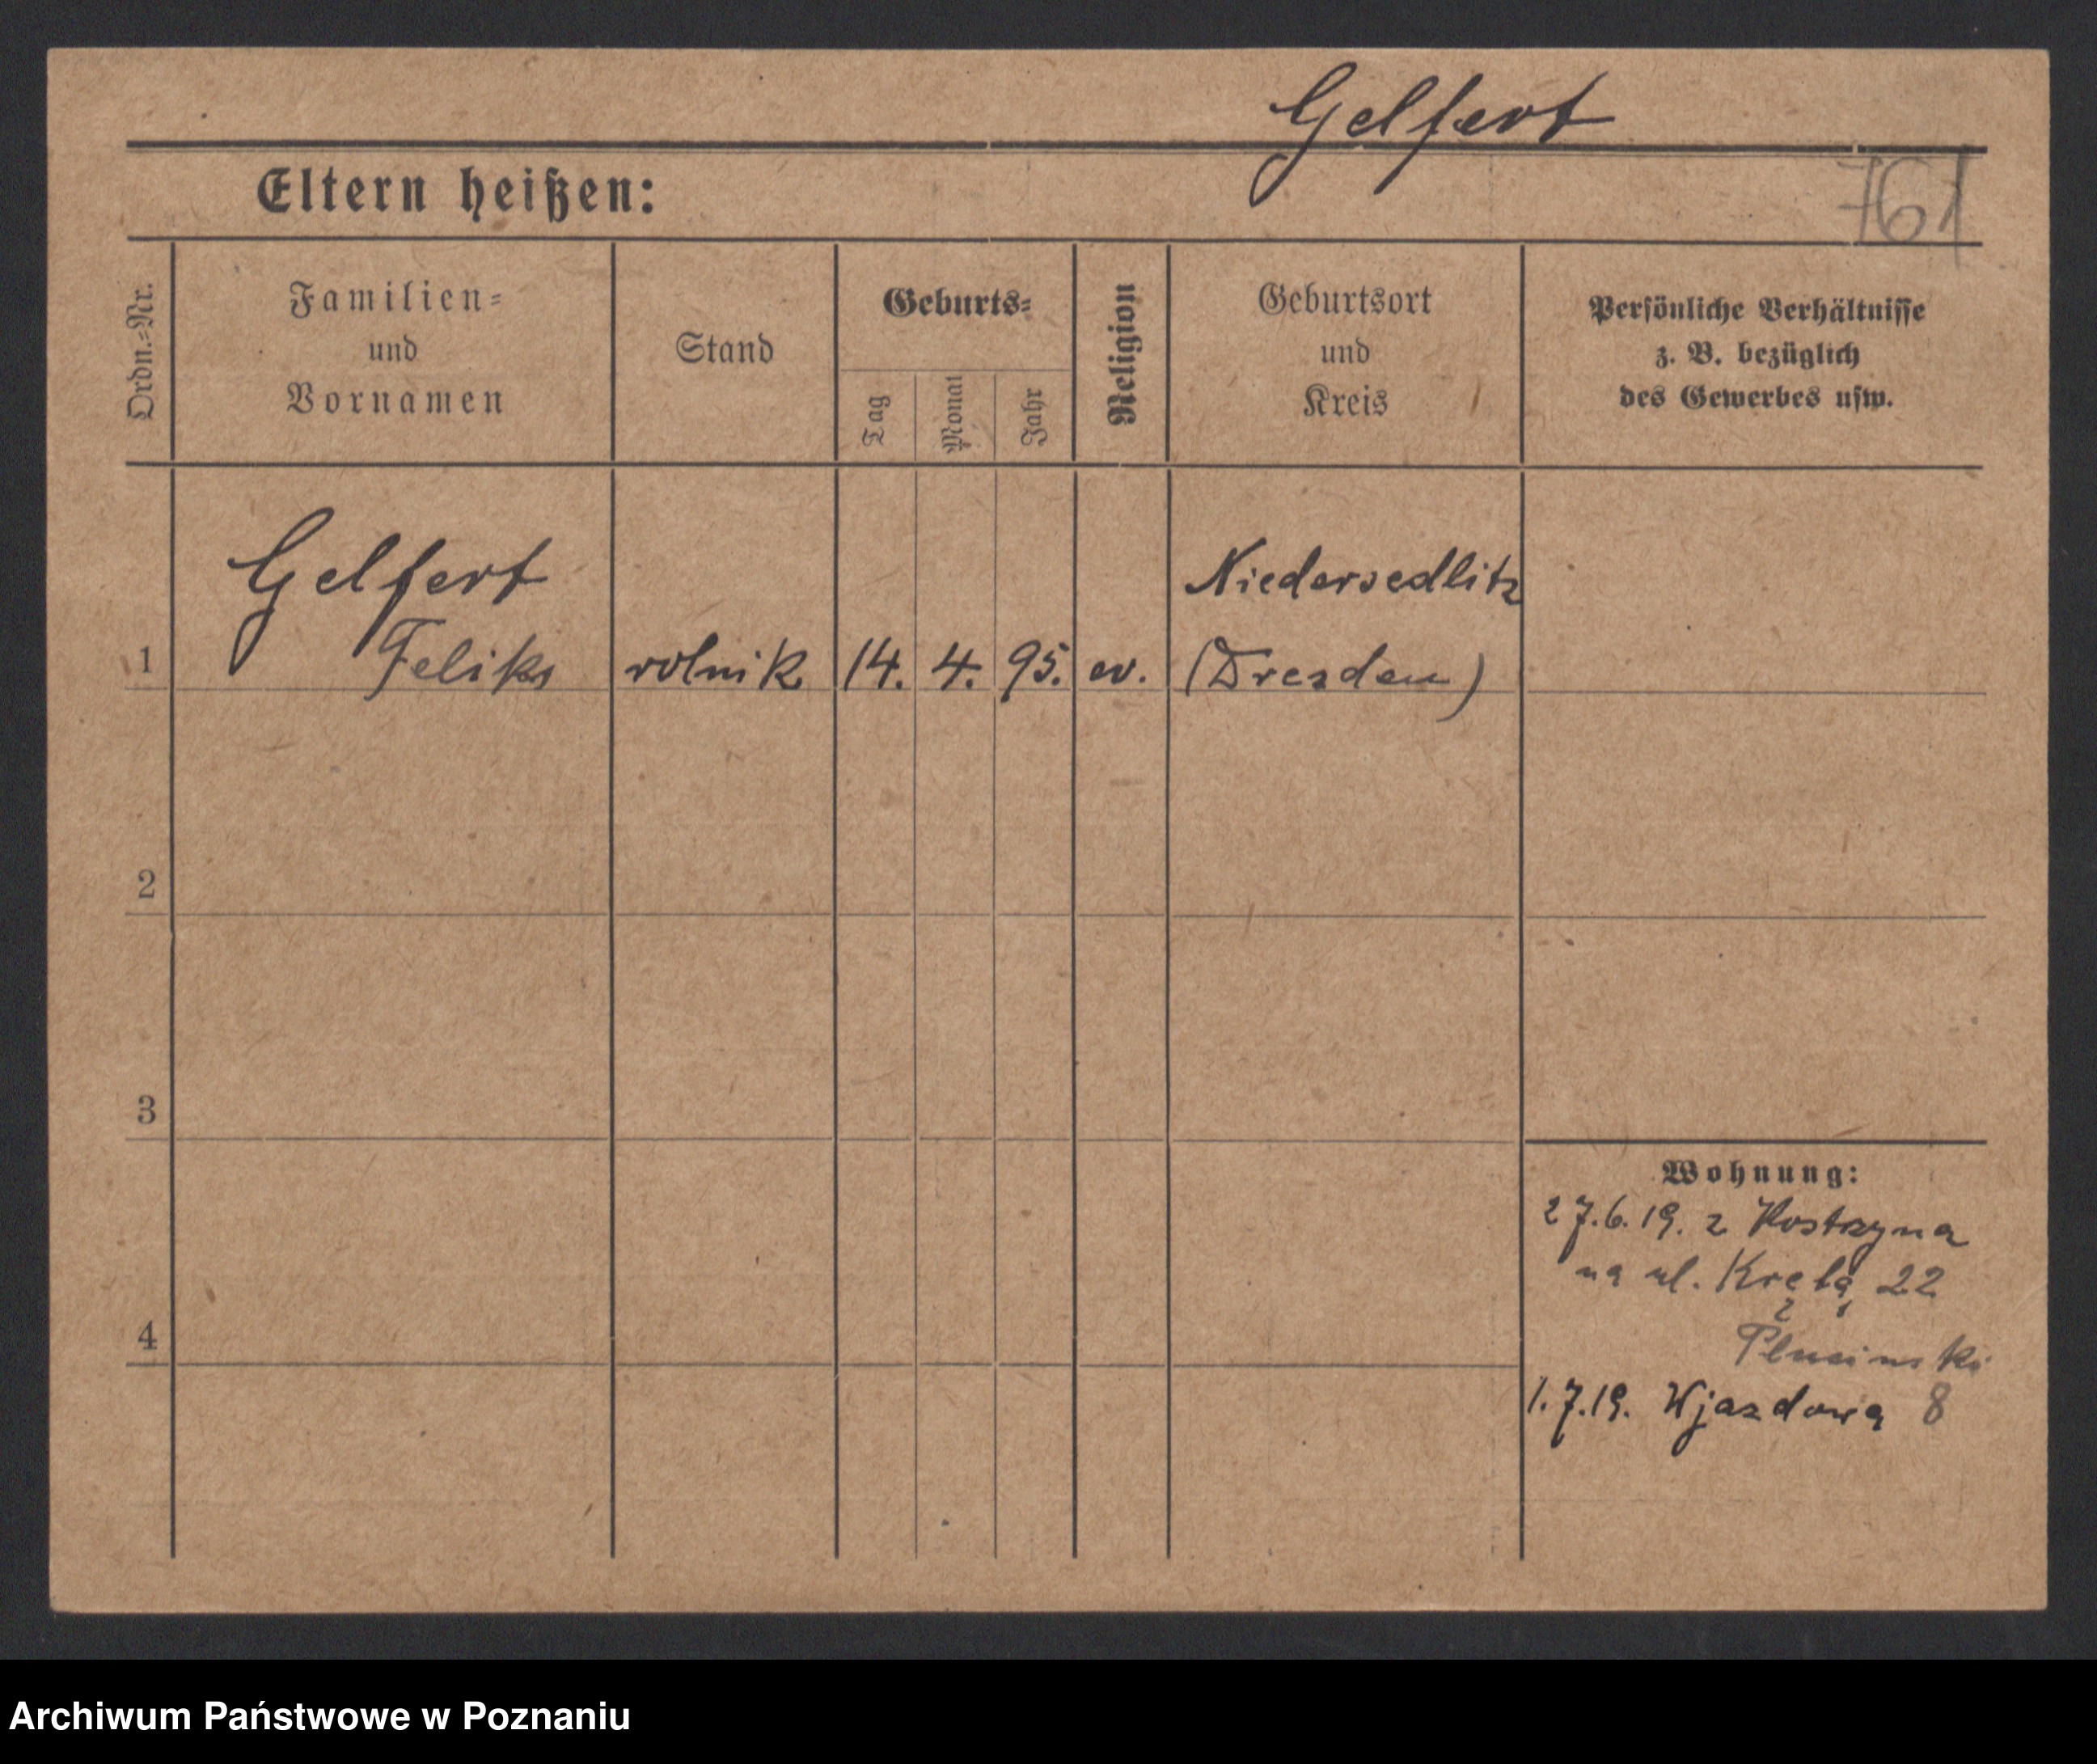 Gelfert
761
Eltern heißen:
Ordn.=Nr.
Familien=
und
Vornamen
Stand
Geburts=
Tag
Monat
Jahr
Religion
Geburtsort
und
Kreis
Persönliche Verhältnisse
z. B. bezüglich
des Gewerbes usw.
Gelfert
Niedersedlitz
1 Feliks rolnik 14. 4. 95. ev. (Dresden)
2
3
Wohnung:
27.6.19. z Kostrzyna
na ul. Krętą 22
4
Plucinski
1.7.19. Wjazdowa 8
Archiwum Państwowe w Poznaniu